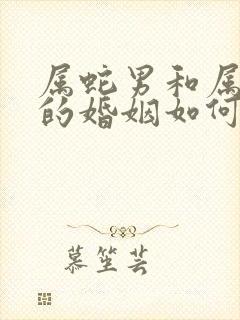 属蛇男和属
的婚姻如何
慕笙芸